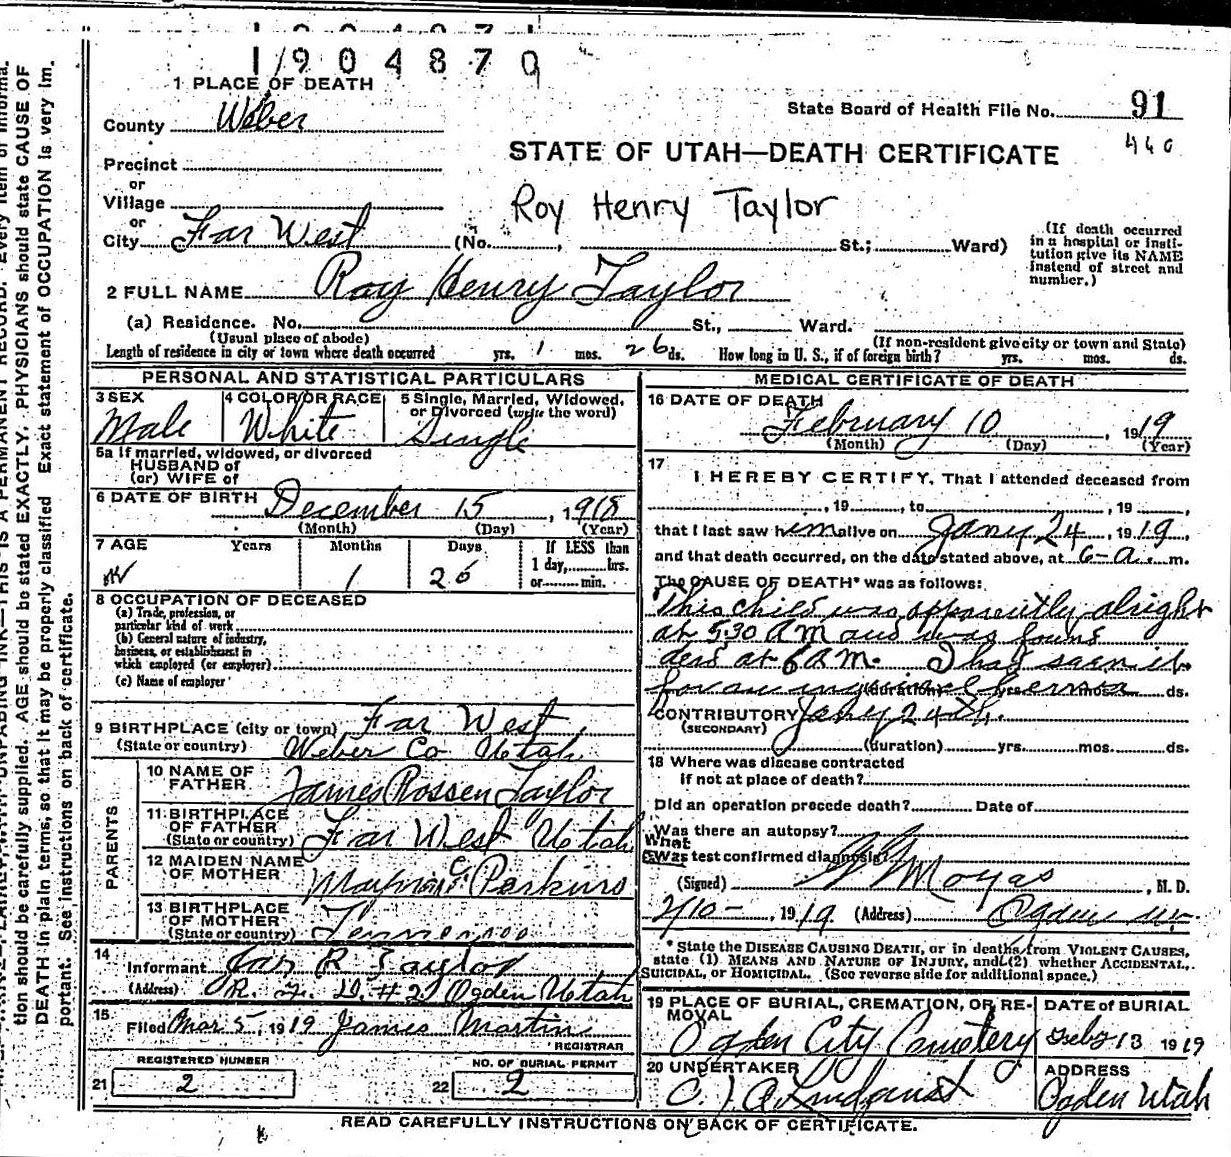 1904870
1 PLACE OF DEATH
County Weber
State Board of Health File No. 91
460
STATE OF UTAH—DEATH CERTIFICATE
Precinct
or
Village
Roy Henry Taylor
or
City Far West (No. , St.; Ward)
(If death occurred in a hospital or institution give its NAME instead of street and number.)
2 FULL NAME Roy Henry Taylor
(a) Residence. No. St., Ward.
(Usual place of abode) (If non-resident give city or town and State)
Length of residence in city or town where death occurred yrs. 1 mos. 26 ds. How long in U. S., if of foreign birth? yrs. mos. ds.
PERSONAL AND STATISTICAL PARTICULARS
3 SEX Male
4 COLOR OR RACE White
5 Single, Married, Widowed, or Divorced (write the word) Single
5a If married, widowed, or divorced
HUSBAND of
(or) WIFE of
6 DATE OF BIRTH December 15, 1918
(Month) (Day) (Year)
7 AGE Years Months Days If LESS than
1 day, hrs.
or min.
1 26
8 OCCUPATION OF DECEASED
(a) Trade, profession, or
particular kind of work
(b) General nature of industry,
business, or establishment in
which employed (or employer)
(c) Name of employer
9 BIRTHPLACE (city or town) Far West
(State or country) Weber Co Utah
PARENTS
10 NAME OF FATHER James Rossen Taylor
11 BIRTHPLACE OF FATHER (State or country) Far West Utah
12 MAIDEN NAME OF MOTHER Perkins
13 BIRTHPLACE OF MOTHER (State or country) Tennessee
14
Informant Jas R Taylor
(Address) R. F. D. #2 Ogden Utah
15
Filed Mar 5, 1919 James Martin
REGISTRAR
REGISTERED NUMBER
21 2
NO. OF BURIAL PERMIT
22 2
MEDICAL CERTIFICATE OF DEATH
16 DATE OF DEATH
February 10, 1919
(Month) (Day) (Year)
17
I HEREBY CERTIFY, That I attended deceased from
, 19 , to , 19 ,
that I last saw him alive on Jany 24, 1919
and that death occurred, on the date stated above, at 6-a.m.
The CAUSE OF DEATH* was as follows:
This child was apparently alright
at 5:30 AM and was found
dead at 6 AM. I had seen it
for an inguinal hernia
(duration) yrs. mos. ds.
CONTRIBUTORY Jany 24th.
(SECONDARY)
(duration) yrs. mos. ds.
18 Where was disease contracted
if not at place of death?
Did an operation precede death? Date of
Was there an autopsy?
What test confirmed diagnosis?
(Signed) , M. D.
2/10-, 1919 (Address) Ogden
* State the DISEASE CAUSING DEATH, or in deaths from VIOLENT CAUSES,
state (1) MEANS AND NATURE OF INJURY, and (2) whether ACCIDENTAL,
SUICIDAL, or HOMICIDAL. (See reverse side for additional space.)
19 PLACE OF BURIAL, CREMATION, OR REMOVAL
Ogden City Cemetery
DATE of BURIAL
Feby 13 1919
20 UNDERTAKER
Lindquist
ADDRESS
Ogden Utah
READ CAREFULLY INSTRUCTIONS ON BACK OF CERTIFICATE.
tion should be carefully supplied. AGE should be stated EXACTLY. PHYSICIANS should state CAUSE OF
DEATH in plain terms, so that it may be properly classified. Exact statement of OCCUPATION is very im-
portant. See instructions on back of certificate.